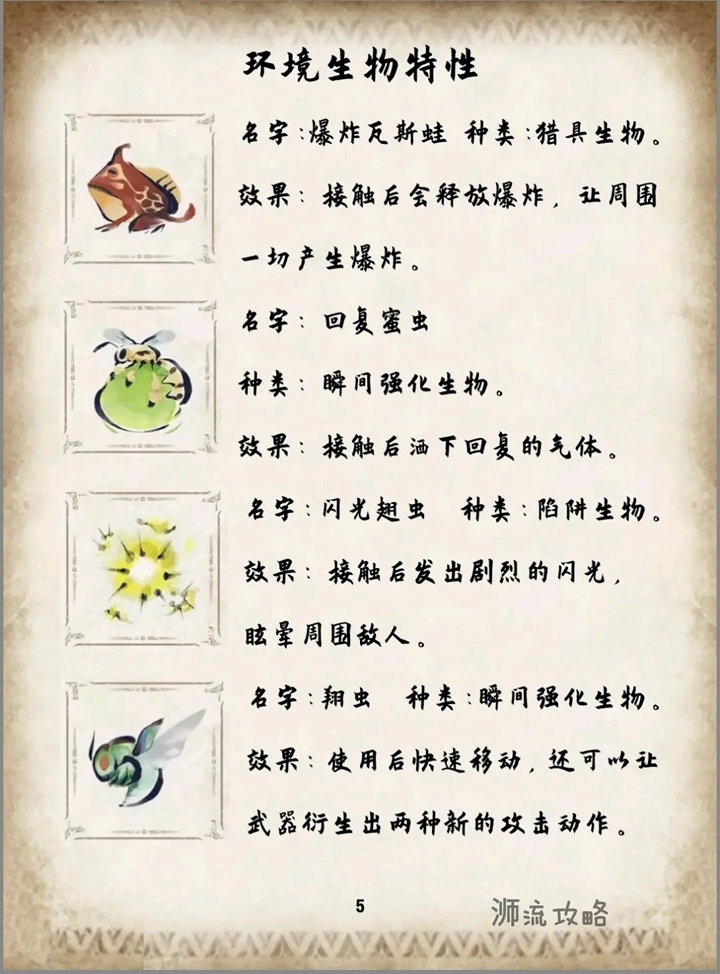 环境生物特性
名字:爆炸瓦斯蛙 种类:猎具生物。
效果: 接触后会释放爆炸, 让周围
一切产生爆炸。
名字: 回复蜜虫
种类: 瞬间强化生物。
效果: 接触后洒下回复的气体。
名字:闪光翅虫 种类:陷阱生物。
效果: 接触后发出剧烈的闪光,
眩晕周围敌人。
名字:翔虫 种类:瞬间强化生物。
效果: 使用后快速移动, 还可以让
武器衍生出两种新的攻击动作。
5
浉流攻略